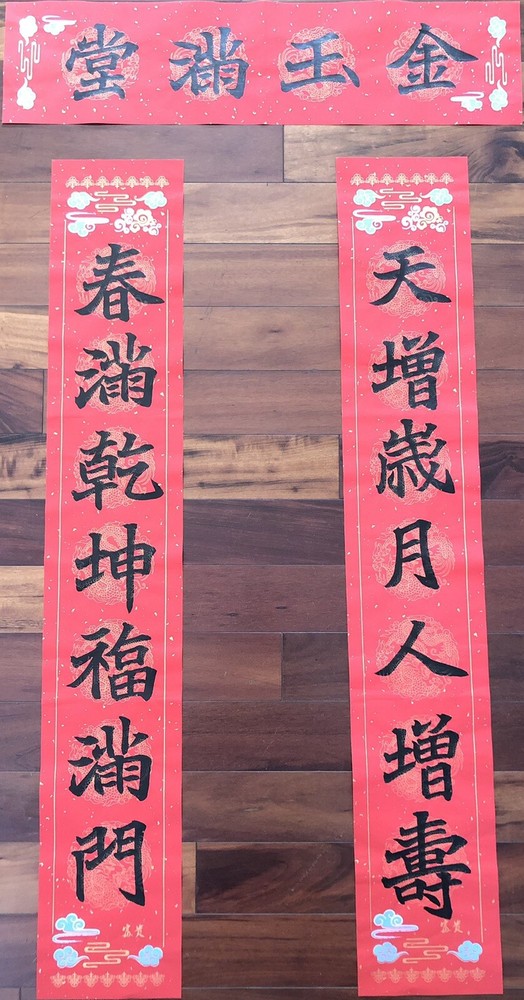 金玉滿堂
天增歲月人增壽
春滿乾坤福滿門